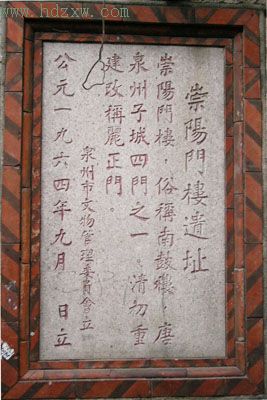 www.hdzxw.com
崇陽門樓遺址
崇陽門樓，俗稱南鼓樓，唐
泉州子城四門之一。清初重
建改稱麗正門。
泉州市文物管理委員會立
公元一九六四年九月　日立